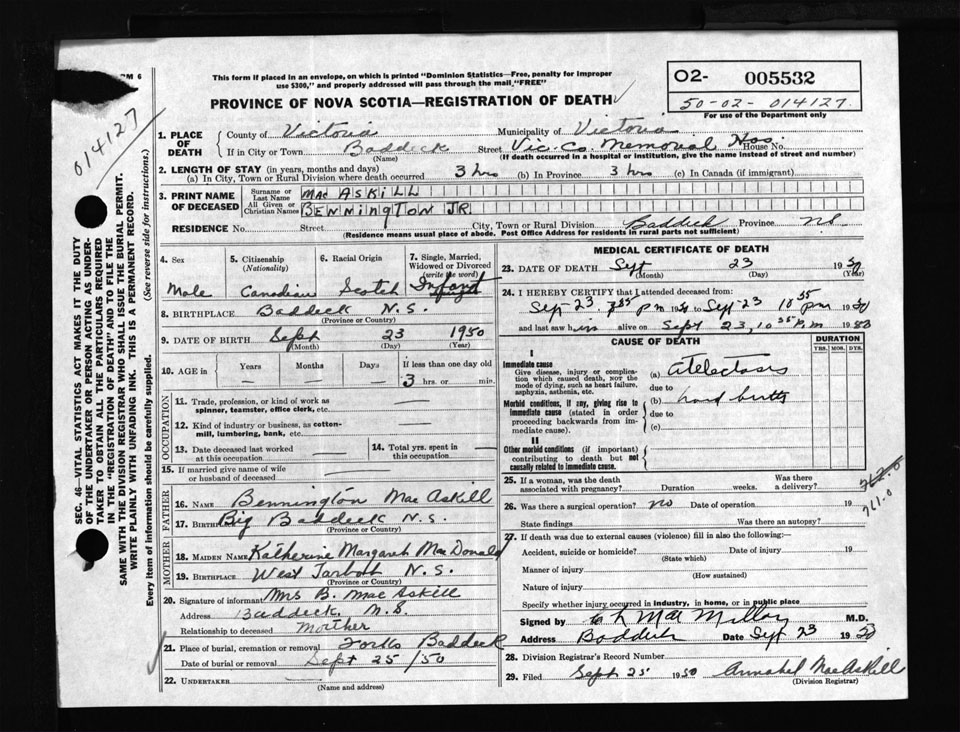 RM 6
This form if placed in an envelope, on which is printed "Dominion Statistics—Free, penalty for improper
use $300," and properly addressed will pass through the mail, "FREE"
PROVINCE OF NOVA SCOTIA—REGISTRATION OF DEATH
O2- 005532
50-02-014127
For use of the Department only
014127
SEC. 46—VITAL STATISTICS ACT MAKES IT THE DUTY
OF THE UNDERTAKER OR PERSON ACTING AS UNDER-
TAKER TO OBTAIN ALL THE PARTICULARS REQUIRED
IN THE "REGISTRATION OF DEATH" AND TO FILE THE
SAME WITH THE DIVISION REGISTRAR WHO SHALL ISSUE THE BURIAL PERMIT.
WRITE PLAINLY WITH UNFADING INK. THIS IS A PERMANENT RECORD.
Every item of information should be carefully supplied. (See reverse side for instructions.)
1. PLACE OF DEATH County of Victoria Municipality of Victoria
If in City or Town Baddeck Street Vic. Co. Memorial Hos. House No.
(Name) (If death occurred in a hospital or institution, give the name instead of street and number)
2. LENGTH OF STAY (in years, months and days)
(a) In City, Town or Rural Division where death occurred 3 hrs (b) In Province 3 hrs (c) In Canada (if immigrant)
3. PRINT NAME OF DECEASED Surname or Last Name MAC ASKILL
All Given or Christian Names BENNINGTON JR.
RESIDENCE No. Street City, Town or Rural Division Baddeck Province NS
(Residence means usual place of abode. Post Office Address for residents in rural parts not sufficient)
4. Sex Male
5. Citizenship (Nationality) Canadian
6. Racial Origin Scotch
7. Single, Married, Widowed or Divorced (write the word) Infant
8. BIRTHPLACE Baddeck N.S.
(Province or Country)
9. DATE OF BIRTH Sept 23 1950
(Month) (Day) (Year)
10. AGE in Years Months Days If less than one day old
3 hrs. or min.
OCCUPATION
11. Trade, profession, or kind of work as
spinner, teamster, office clerk, etc.
12. Kind of industry or business, as cotton-
mill, lumbering, bank, etc.
13. Date deceased last worked at this occupation
14. Total yrs. spent in this occupation
15. If married give name of wife
or husband of deceased
FATHER
16. NAME Bennington Mac Askill
17. BIRTHPLACE Big Baddeck N.S.
(Province or Country)
MOTHER
18. MAIDEN NAME Katherine Margaret MacDonald
19. BIRTHPLACE West Tarbot N.S.
(Province or Country)
20. Signature of informant Mrs B. Mac Askill
Address Baddeck N.S.
Relationship to deceased Mother
21. Place of burial, cremation or removal Forks Baddeck
Date of burial or removal Sept 25/50
22. UNDERTAKER
(Name and address)
MEDICAL CERTIFICATE OF DEATH
23. DATE OF DEATH Sept 23 1950
(Month) (Day) (Year)
24. I HEREBY CERTIFY that I attended deceased from:
Sept 23 PM to Sept 23 10 35 pm 1950
and last saw him alive on Sept 23, 10 35 P.m 19
CAUSE OF DEATH DURATION
YRS. MOS. DYS.
I
Immediate cause
Give disease, injury or complica-
tion which caused death, NOT the
mode of dying, such as heart failure,
asphyxia, asthenia, etc.
(a) Atelectasis
due to
(b) hard birth
Morbid conditions, if any, giving rise to
immediate cause (stated in order
proceeding backwards from im-
mediate cause).
due to
(c)
II
Other morbid conditions (if important)
contributing to death but not
causally related to immediate cause.
25. If a woman, was the death
associated with pregnancy? Duration weeks. Was there
a delivery?
762.0
761.0
26. Was there a surgical operation? no Date of operation 19
State findings Was there an autopsy?
27. If death was due to external causes (violence) fill in also the following:—
Accident, suicide or homicide? Date of injury 19
(State which)
Manner of injury
(How sustained)
Nature of injury
Specify whether injury occurred in industry, in home, or in public place
Signed by Mac Millan M.D.
Address Baddeck Date Sept 23 1950
28. Division Registrar's Record Number
29. Filed Sept 25 1950 Annabel MacAskill
(Division Registrar)